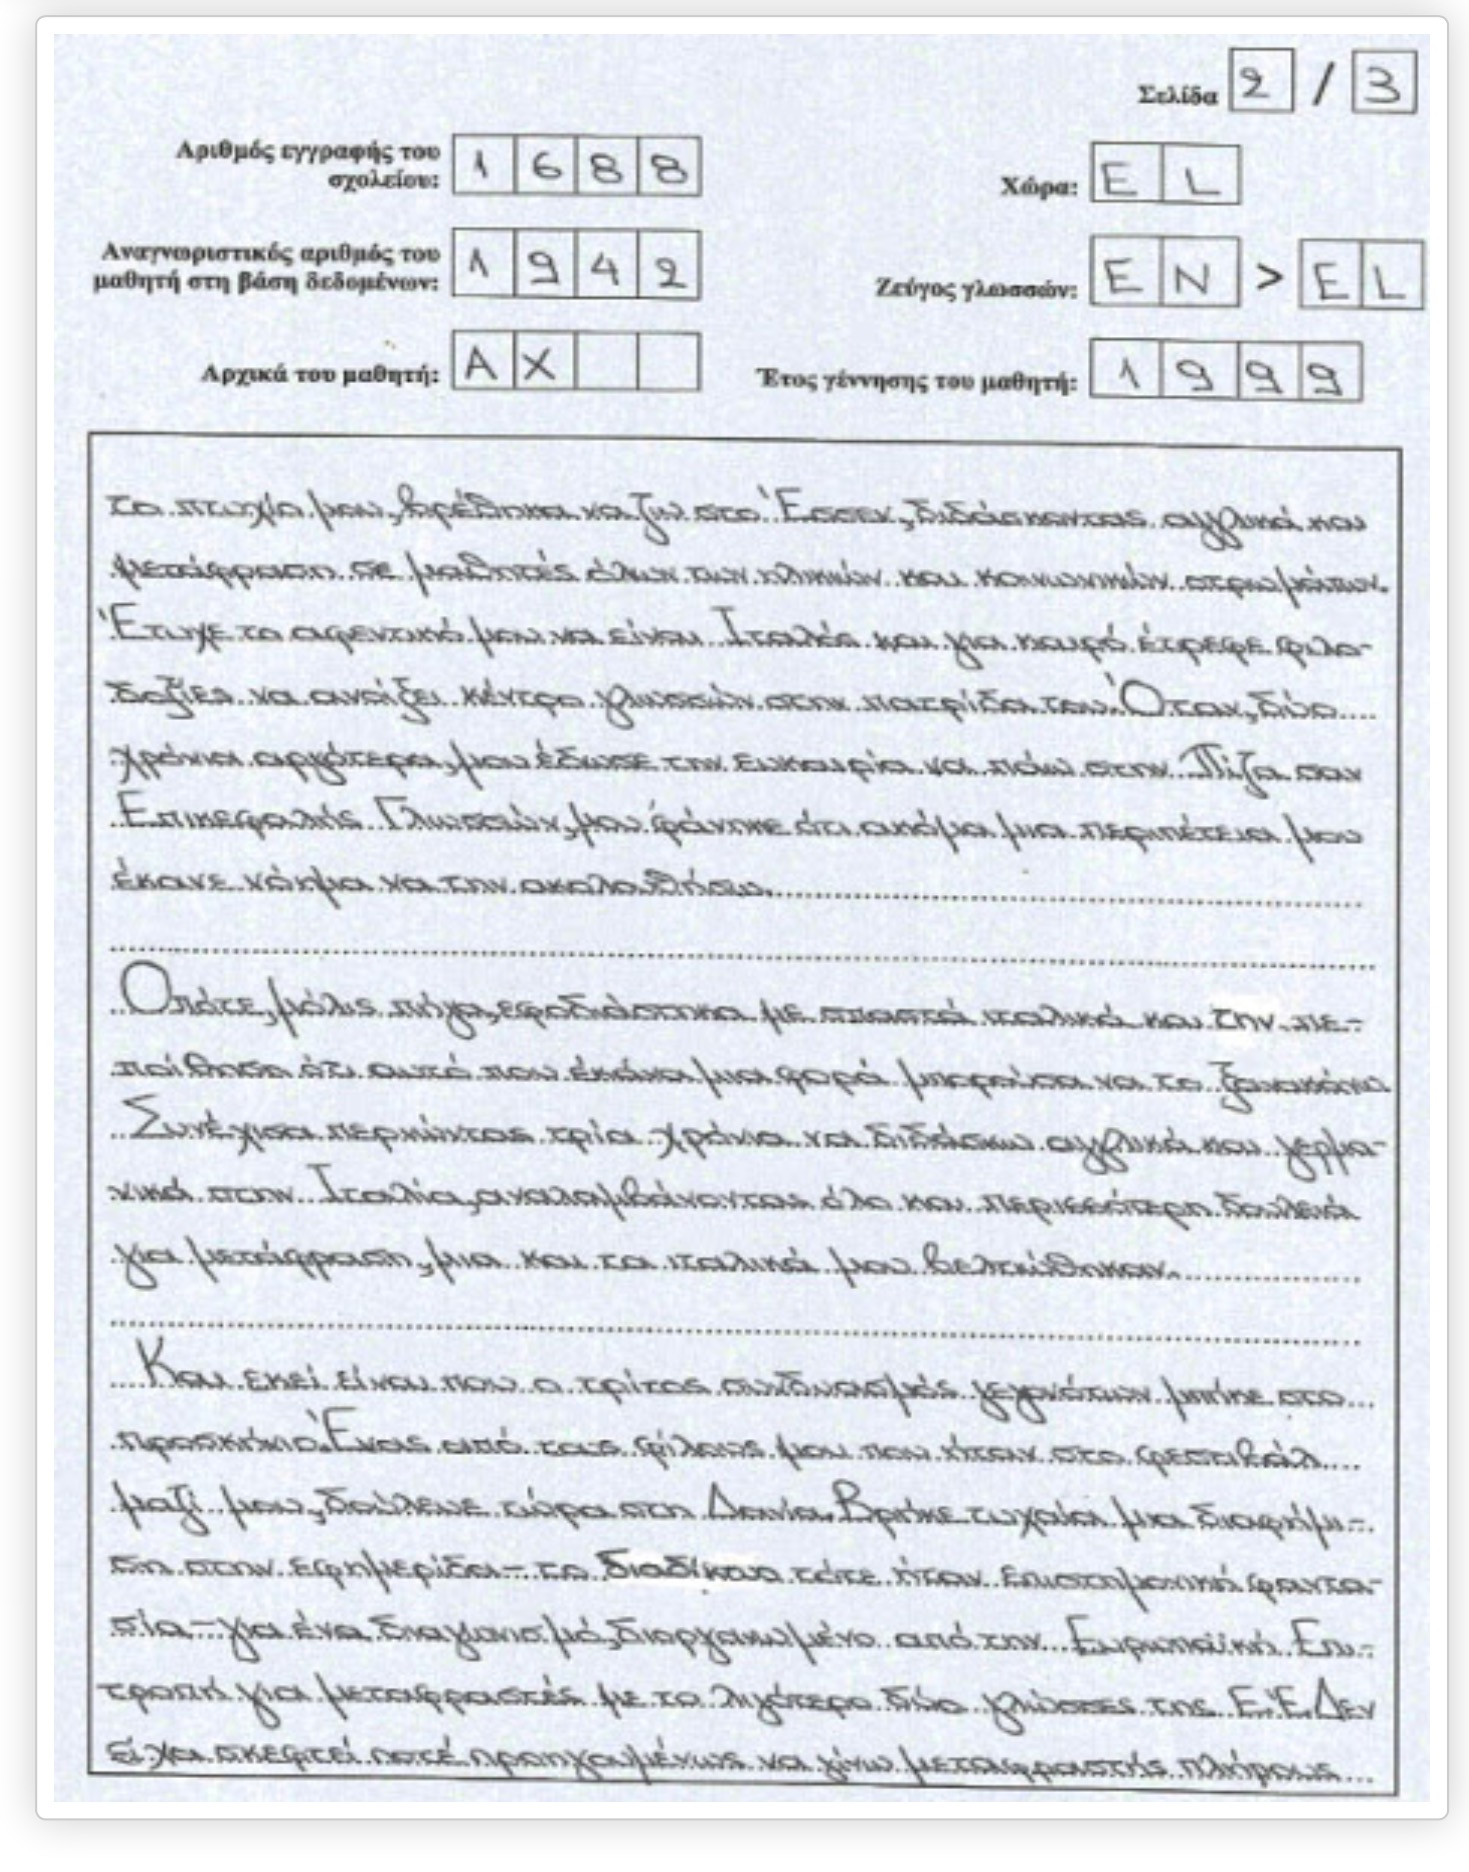 Σελίδα 2 / 3
Αριθμός εγγραφής του
σχολείου: 1 6 8 8
Χώρα: E L
Αναγνωριστικός αριθμός του
μαθητή στη βάση δεδομένων: 1 9 4 2
Ζεύγος γλωσσών: E N > E L
Αρχικά του μαθητή: A X
Έτος γέννησης του μαθητή: 1 9 9 9
το πτυχίο μου, βρέθηκα να ζω στο Έσσεκ, διδάσκοντας αγγλικά και
μετάφραση σε μαθητές όλων των ηλικιών και κοινωνικών στρωμάτων.
Έτυχε το αφεντικό μου να είναι Ιταλός και για καιρό έτρεφε φιλο-
δοξίες να ανοίξει κέντρο γλωσσών στην πατρίδα του. Όταν, δύο
χρόνια αργότερα, μου έδωσε την ευκαιρία να πάω στην Πίζα σαν
Επικεφαλής Γλωσσών, μου φάνηκε ότι ακόμα μια περιπέτεια μου
έκανε νόημα να την ακολουθήσω.
Οπότε, μόλις πήγα, εφοδιάστηκα με σπαστά ιταλικά και την πε-
ποίθηση ότι αυτό που έκανα μια φορά μπορούσα να το ξανακάνω
Συνέχισα περνώντας τρία χρόνια να διδάσκω αγγλικά και γερμα-
νικά στην Ιταλία, αναλαμβάνοντας όλο και περισσότερη δουλειά
για μετάφραση, μια και τα ιταλικά μου βελτιώθηκαν.
Και εκεί είναι που ο τρίτος συνδυασμός γεγονότων μπήκε στο
προσκήνιο. Ένας από τους φίλους μου που ήταν στο φεστιβάλ
μαζί μου, δούλευε τώρα στη Δανία. Βρήκε τυχαία μια διαφήμι-
ση στην εφημερίδα - το διαδίκτυο τότε ήταν επιστημονική φαντα-
σία - για ένα διαγωνισμό, διοργανωμένο από την Ευρωπαϊκή Επι-
τροπή για μεταφραστές με το λιγότερο δύο γλώσσες της Ε.Έ. Δεν
είχα σκεφτεί ποτέ προηγουμένως να γίνω μεταφραστής πλήρους